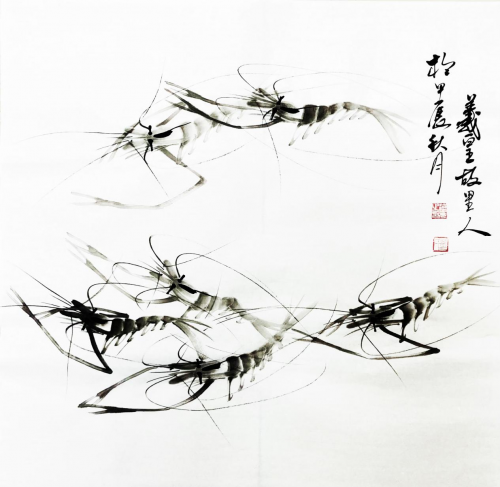 羲皇故里人
於甲辰秋月